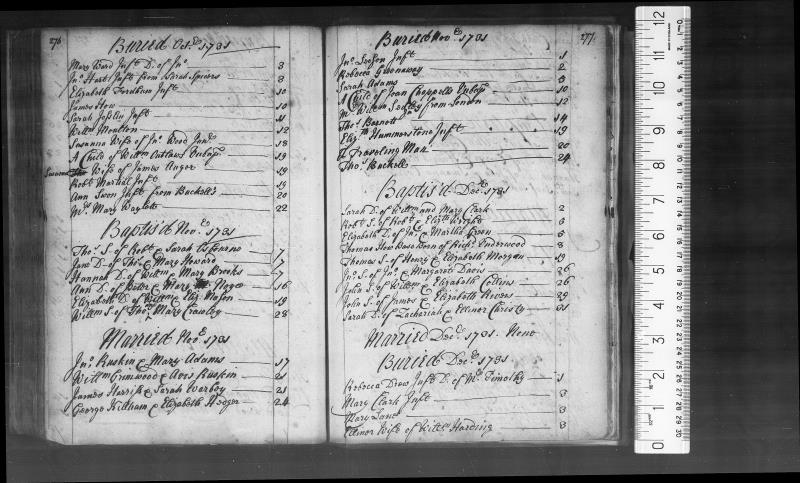 276
Buried Oct. 1731
Mary Ward Inft D. of Jno 3
Jno Hart Inft from Sarah Spicers 8
Elizabeth Fordham Inft 10
James How 10
Sarah Joslin Inft 11
Willm Moulton 12
Susanna Wife of Jno Wood Junr 18
A Child of Willm Outlaws Unbapd 19
Susanna Wife of James Anger 19
Robt Martial Inft 19
Ann Swon Inft from Buckells 20
Mrs Mary Waylett 22
Baptis'd Nov. 1731
Thos S. of Robt & Sarah Osborne 7
Jane D. of Thos & Mary Howard 7
Hannah D. of Willm & Mary Brooks 7
Ann D. of Peter & Mary 16
Elizabeth D. of Willm & Eliz. Mason 19
Willm S. of Thos Mary Crawley 28
Married Nov. 1731
Jno Ruskin & Mary Adams 17
Willm Grimwood & Aves Ruskin 21
James Harris & Sarah Warboy 21
George Killham & Elizabeth Hedger 24
277
Buried Nov. 1731
Jno Inft 1
Rebecca Greenaway 2
Sarah Adams 3
A Child of Joan Chappells Unbapd 10
Mr Willm Sedley from London 12
Thos Barnett 14
Elizth Hummerstone Inft 19
A Traveling Man 20
Thos Buckell 24
Baptis'd Dec. 1731
Sarah D. of Willm and Mary Clark 2
Robt S. of Robt & Elizth Wright 3
Elizabeth D. of Jno & Martha Green 5
Thomas How Base Born of Richd Underwood 8
Thomas S. of Henry & Elizabeth Morgan 19
Jno S. of Jno & Margaret Davis 26
John S. of Willm & Elizabeth Collins 26
John S. of James & Elizabeth Reeves 29
Sarah D. of Zachariah & Ellinor Christy 31
Married Dec. 1731. None
Buried Dec. 1731
Rebecca Draw Inft D. of Mr Timothy 1
Mary Clark Inft 3
Mary 3
Ellinor Wife of Willm Harding 8